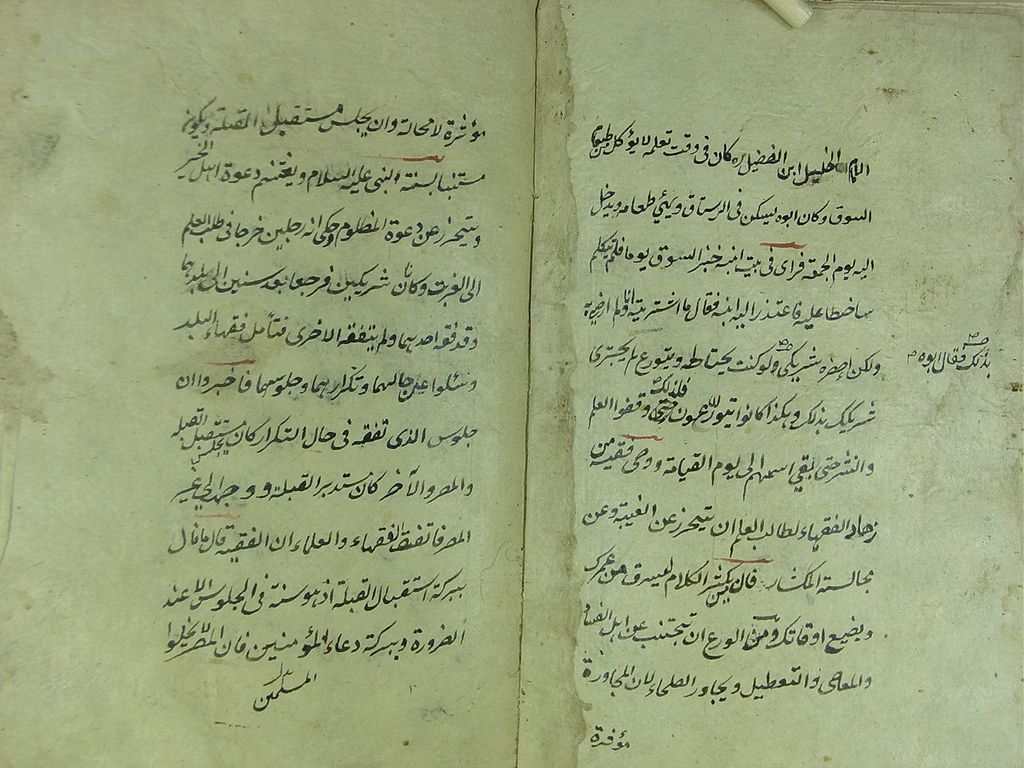 الامام الجليل ابن الفضيل ره كان فى وقت تعلمه لا يؤكل من طعام
السوق وكان ابوه يسكن فى الرستاق ويهئ طعامه ويدخل
اليه يوم الجمعة فراى فى بيت ابنه خبز السوق يوما فلم يتكلم
ساخطا عليه فاعتذر اليه ابنه فقال ما اشتريته انا ولم ارض به
ولكن احضره شريكى ولو كنت تحتاط وتتورع لم يجترى
بذلك فقال ابوه
شريكك بذلك وهكذا كانوا يتورعون فلذلك وفقوا العلم
والنشر حتى بقى اسمهم الى يوم القيامة ووصى فقيه من
زهاد الفقهاء لطالب العلم ان يتحرز عن الغيبة وعن
مجالسة المكثار فان من يكثر الكلام ليسرق من عمرك
ويضيع اوقاتك ومن الورع ان يجتنب عن اهل الفساد
والمعاصى والتعطيل ويجاور الصلحاء لان المجاورة
مؤثرة
مؤثرة لا محالة وان يجلس مستقبل القبلة ويكون
مستنا بسنة النبى عليه السلام ويغتنم دعوة اهل الخير
ويتحرز عن دعوة المظلوم وحكى انه رجلين خرجا فى طلب العلم
الى الغربة وكانا شريكين فرجعا بعد سنين الى بلدهما
وقد فقه احدهما ولم يتفقه الاخرى فتأمل فقهاء البلد
وسئلوا عن حالهما وتكرارهما وجلوسهما فاخبروا ان
جلوس الذى تفقه فى حال التكرار كان مستقبل القبلة
والمصر والآخر كان مستدبر القبلة ووجهه الى غير
المصر فاتفق الفقهاء والعلماء ان الفقيه قال ما قال
ببركة استقبال القبلة اذ هو سنة فى الجلوس الا عند
الضرورة وببركة دعاء المؤمنين فان المصر لا يخلوا
المسلمين